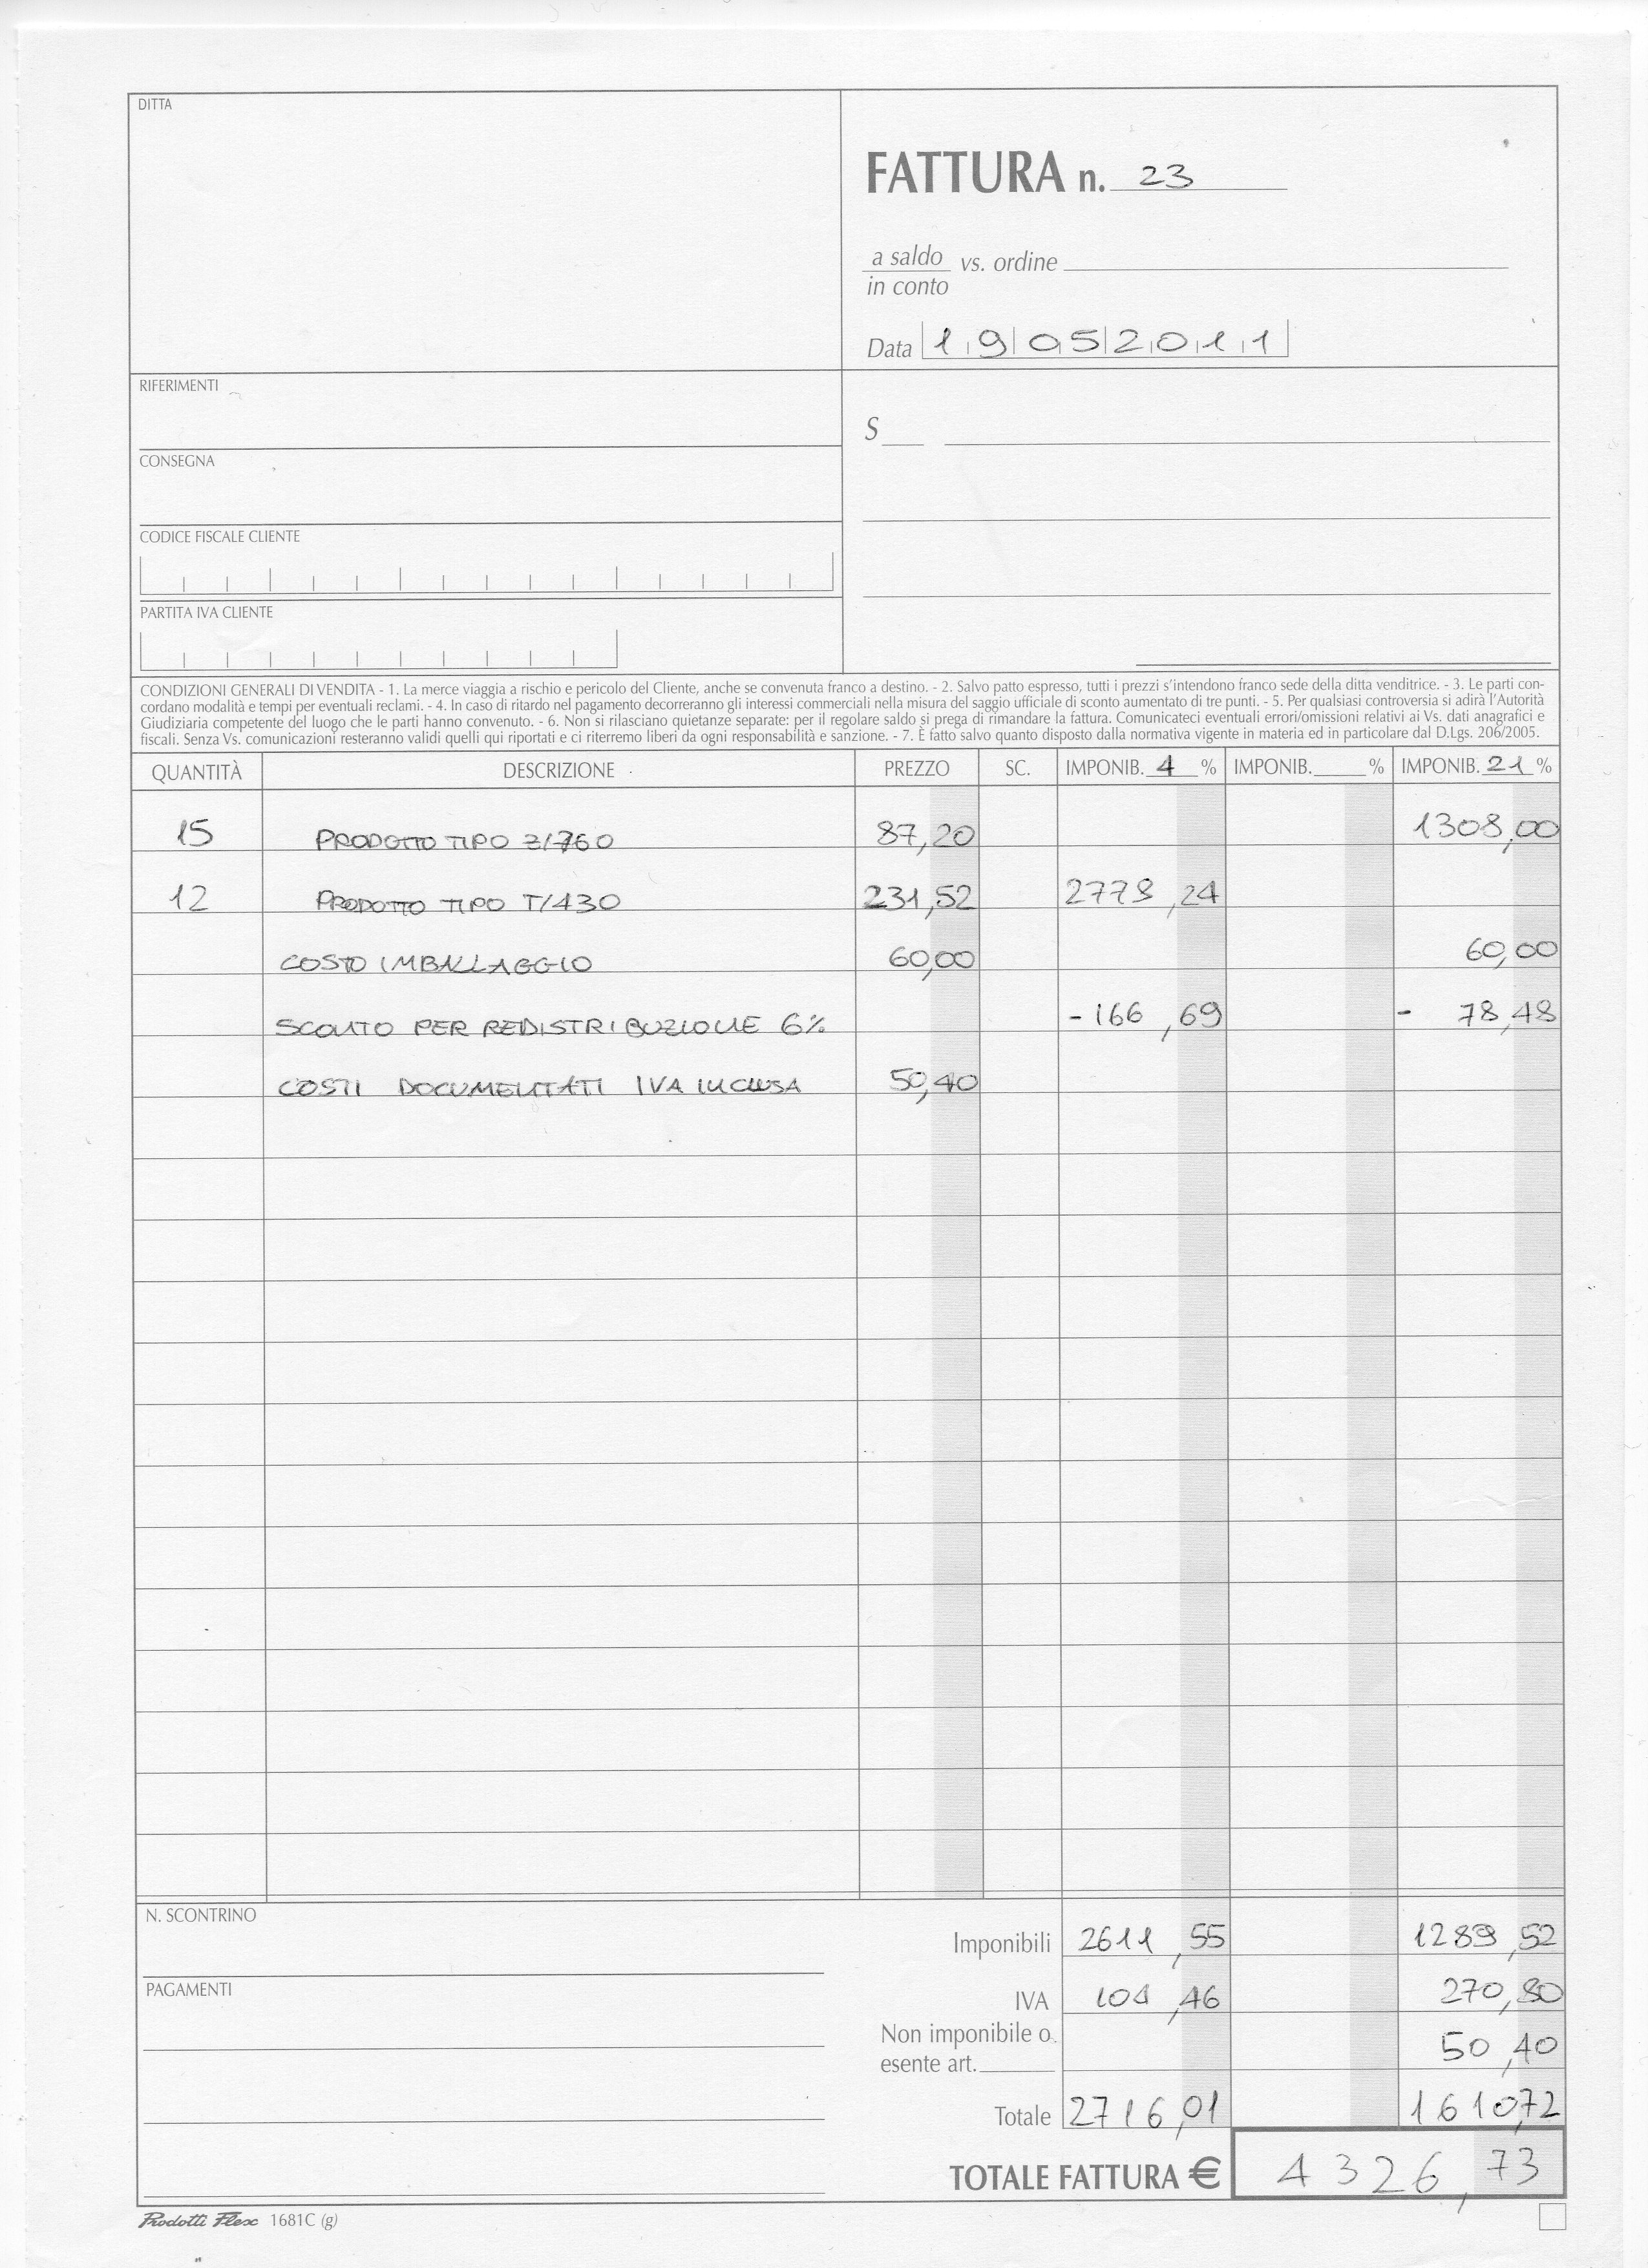 DITTA
FATTURA n. 23
a saldo vs. ordine
in conto
Data 19052011
RIFERIMENTI
S
CONSEGNA
CODICE FISCALE CLIENTE
PARTITA IVA CLIENTE
CONDIZIONI GENERALI DI VENDITA - 1. La merce viaggia a rischio e pericolo del Cliente, anche se convenuta franco a destino. - 2. Salvo patto espresso, tutti i prezzi s'intendono franco sede della ditta venditrice. - 3. Le parti con-
cordano modalità e tempi per eventuali reclami. - 4. In caso di ritardo nel pagamento decorreranno gli interessi commerciali nella misura del saggio ufficiale di sconto aumentato di tre punti. - 5. Per qualsiasi controversia si adirà l'Autorità
Giudiziaria competente del luogo che le parti hanno convenuto. - 6. Non si rilasciano quietanze separate: per il regolare saldo si prega di rimandare la fattura. Comunicateci eventuali errori/omissioni relativi ai Vs. dati anagrafici e
fiscali. Senza Vs. comunicazioni resteranno validi quelli qui riportati e ci riterremo liberi da ogni responsabilità e sanzione. - 7. È fatto salvo quanto disposto dalla normativa vigente in materia ed in particolare dal D.Lgs. 206/2005.
QUANTITÀ DESCRIZIONE PREZZO SC. IMPONIB. 4 % IMPONIB. % IMPONIB. 21 %
15 PRODOTTO TIPO Z/760 87,20 1308,00
12 PRODOTTO TIPO T/430 231,52 2778,24
COSTO IMBALLAGGIO 60,00 60,00
SCONTO PER REDISTRIBUZIONE 6% -166,69 - 78,48
COSTI DOCUMENTATI IVA INCLUSA 50,40
N. SCONTRINO
Imponibili 2611,55 1289,52
PAGAMENTI
IVA 104,46 270,80
Non imponibile o
esente art. 50,40
Totale 2716,01 1610,72
TOTALE FATTURA € 4326,73
Prodotti Flex 1681C (g)